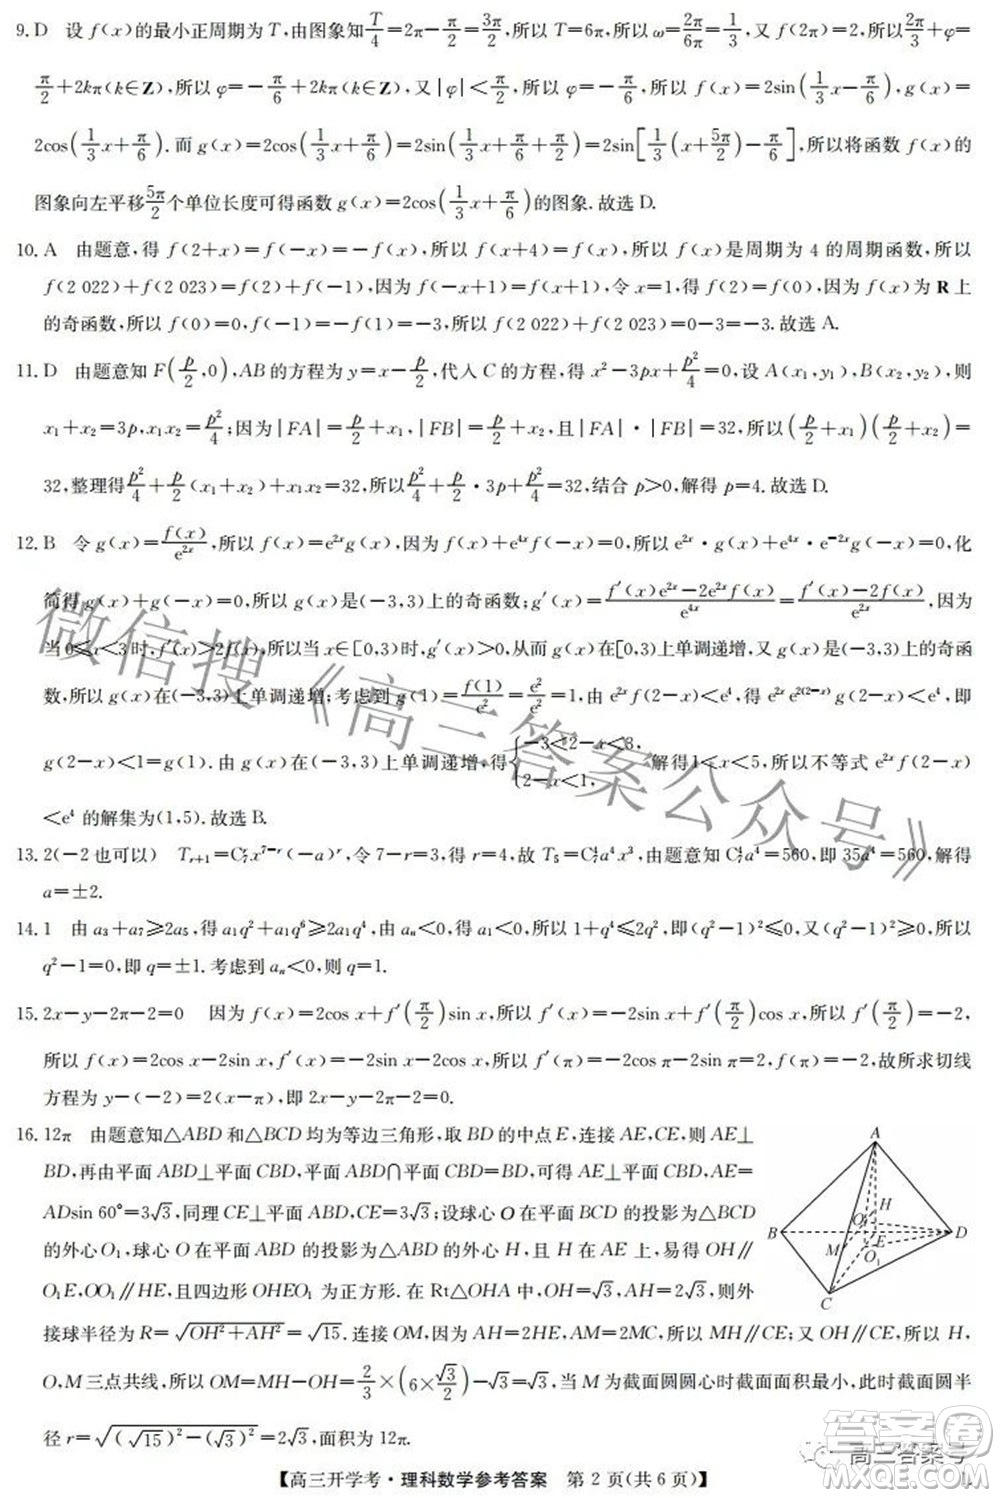 9. D　设 f(x)的最小正周期为 T,由图象知 T/4=2π−π/2=3π/2,所以 T=6π,所以 ω=2π/6π=1/3,又 f(2π)=2,所以 2π/3+φ=
π/2+2kπ(k∈Z),所以 φ=−π/6+2kπ(k∈Z),又|φ|<π/2,所以 φ=−π/6,所以 f(x)=2sin(1/3x−π/6),g(x)=
2cos(1/3x+π/6).而 g(x)=2cos(1/3x+π/6)=2sin(1/3x+π/6+π/2)=2sin[1/3(x+5π/2)−π/6],所以将函数 f(x)的
图象向左平移5π/2个单位长度可得函数 g(x)=2cos(1/3x+π/6)的图象.故选 D.
10. A　由题意,得 f(2+x)=f(−x)=−f(x),所以 f(x+4)=f(x),所以 f(x)是周期为 4 的周期函数,所以
f(2 022)+f(2 023)=f(2)+f(−1),因为 f(−x+1)=f(x+1),令 x=1,得 f(2)=f(0),因为 f(x)为 R 上
的奇函数,所以 f(0)=0,f(−1)=−f(1)=−3,所以 f(2 022)+f(2 023)=0−3=−3.故选 A.
11. D　由题意知 F(p/2,0),AB 的方程为 y=x−p/2,代入 C 的方程,得 x²−3px+p²/4=0,设 A(x₁,y₁),B(x₂,y₂),则
x₁+x₂=3p,x₁x₂=p²/4;因为|FA|=p/2+x₁,|FB|=p/2+x₂,且|FA|·|FB|=32,所以(p/2+x₁)(p/2+x₂)=
32,整理得p²/4+p/2(x₁+x₂)+x₁x₂=32,所以p²/4+p/2·3p+p²/4=32,结合 p>0,解得 p=4.故选 D.
12. B　令 g(x)=f(x)/e²ˣ,所以 f(x)=e²ˣg(x),因为 f(x)+e⁴ˣf(−x)=0,所以 e²ˣ·g(x)+e⁴ˣ·e⁻²ˣg(−x)=0,化
简得 g(x)+g(−x)=0,所以 g(x)是(−3,3)上的奇函数;g′(x)=(f′(x)e²ˣ−2e²ˣf(x))/e⁴ˣ=(f′(x)−2f(x))/e²ˣ,因为
当 0≤x<3时,f′(x)>2f(x),所以当 x∈[0,3)时,g′(x)>0,从而 g(x)在[0,3)上单调递增,又 g(x)是(−3,3)上的奇函
数,所以 g(x)在(−3,3)上单调递增;考虑到 g(1)=f(1)/e²=e²/e²=1,由 e²ˣf(2−x)<e⁴,得 e²ˣe²⁽²⁻ˣ⁾g(2−x)<e⁴,即
g(2−x)<1=g(1).由 g(x)在(−3,3)上单调递增,得{−3<2−x<3, 2−x<1,解得1<x<5,所以不等式 e²ˣf(2−x)
<e⁴ 的解集为(1,5).故选 B.
13. 2(−2 也可以)　Tᵣ₊₁=C₇ʳx⁷⁻ʳ(−a)ʳ,令 7−r=3,得 r=4,故 T₅=C₇⁴a⁴x³,由题意知 C₇⁴a⁴=560,即 35a⁴=560,解得
a=±2.
14. 1　由 a₃+a₇≥2a₅,得 a₁q²+a₁q⁶≥2a₁q⁴,由 aₙ<0,得 a₁<0,所以 1+q⁴≤2q²,即(q²−1)²≤0,又(q²−1)²≥0,所以
q²−1=0,即 q=±1.考虑到 aₙ<0,得 q=1.
15. 2x−y−2π−2=0　因为 f(x)=2cos x+f′(π/2)sin x,所以 f′(x)=−2sin x+f′(π/2)cos x,所以 f′(π/2)=−2,
所以 f(x)=2cos x−2sin x,f′(x)=−2sin x−2cos x,所以 f′(π)=−2cos π−2sin π=2,f(π)=−2,故所求切线
方程为 y−(−2)=2(x−π),即 2x−y−2π−2=0.
16. 12π　由题意知△ABD 和△BCD 均为等边三角形,取 BD 的中点 E,连接 AE,CE,则 AE⊥
BD,再由平面 ABD⊥平面 CBD,平面 ABD∩平面 CBD=BD,可得 AE⊥平面 CBD,AE=
ADsin 60°=3√3,同理 CE⊥平面 ABD,CE=3√3;设球心 O 在平面 BCD 的投影为△BCD
的外心 O₁,球心 O 在平面 ABD 的投影为△ABD 的外心 H,且 H 在 AE 上,易得 OH∥
O₁E,OO₁∥HE,且四边形 OHEO₁ 为正方形.在 Rt△OHA 中,OH=√3,AH=2√3,所以外
接球半径为 R=√(OH²+AH²)=√15.连接 OM,因为 AH=2HE,AM=2MC,所以 MH∥CE;又 OH∥CE,所以 H,
O,M 三点共线,所以 OM=MH−OH=2/3×(6×√3/2)−√3=√3,当 M 为截面圆圆心时截面面积最小,此时截面圆半
径 r=√((√15)²−(√3)²)=2√3,面积为 12π.
A
H
O
B
E
D
M
O₁
C
【高三开学考·理科数学参考答案　第 2 页(共 6 页)】
微信搜《高三答案公众号》
高三答案号
答案圈
MXQE.COM